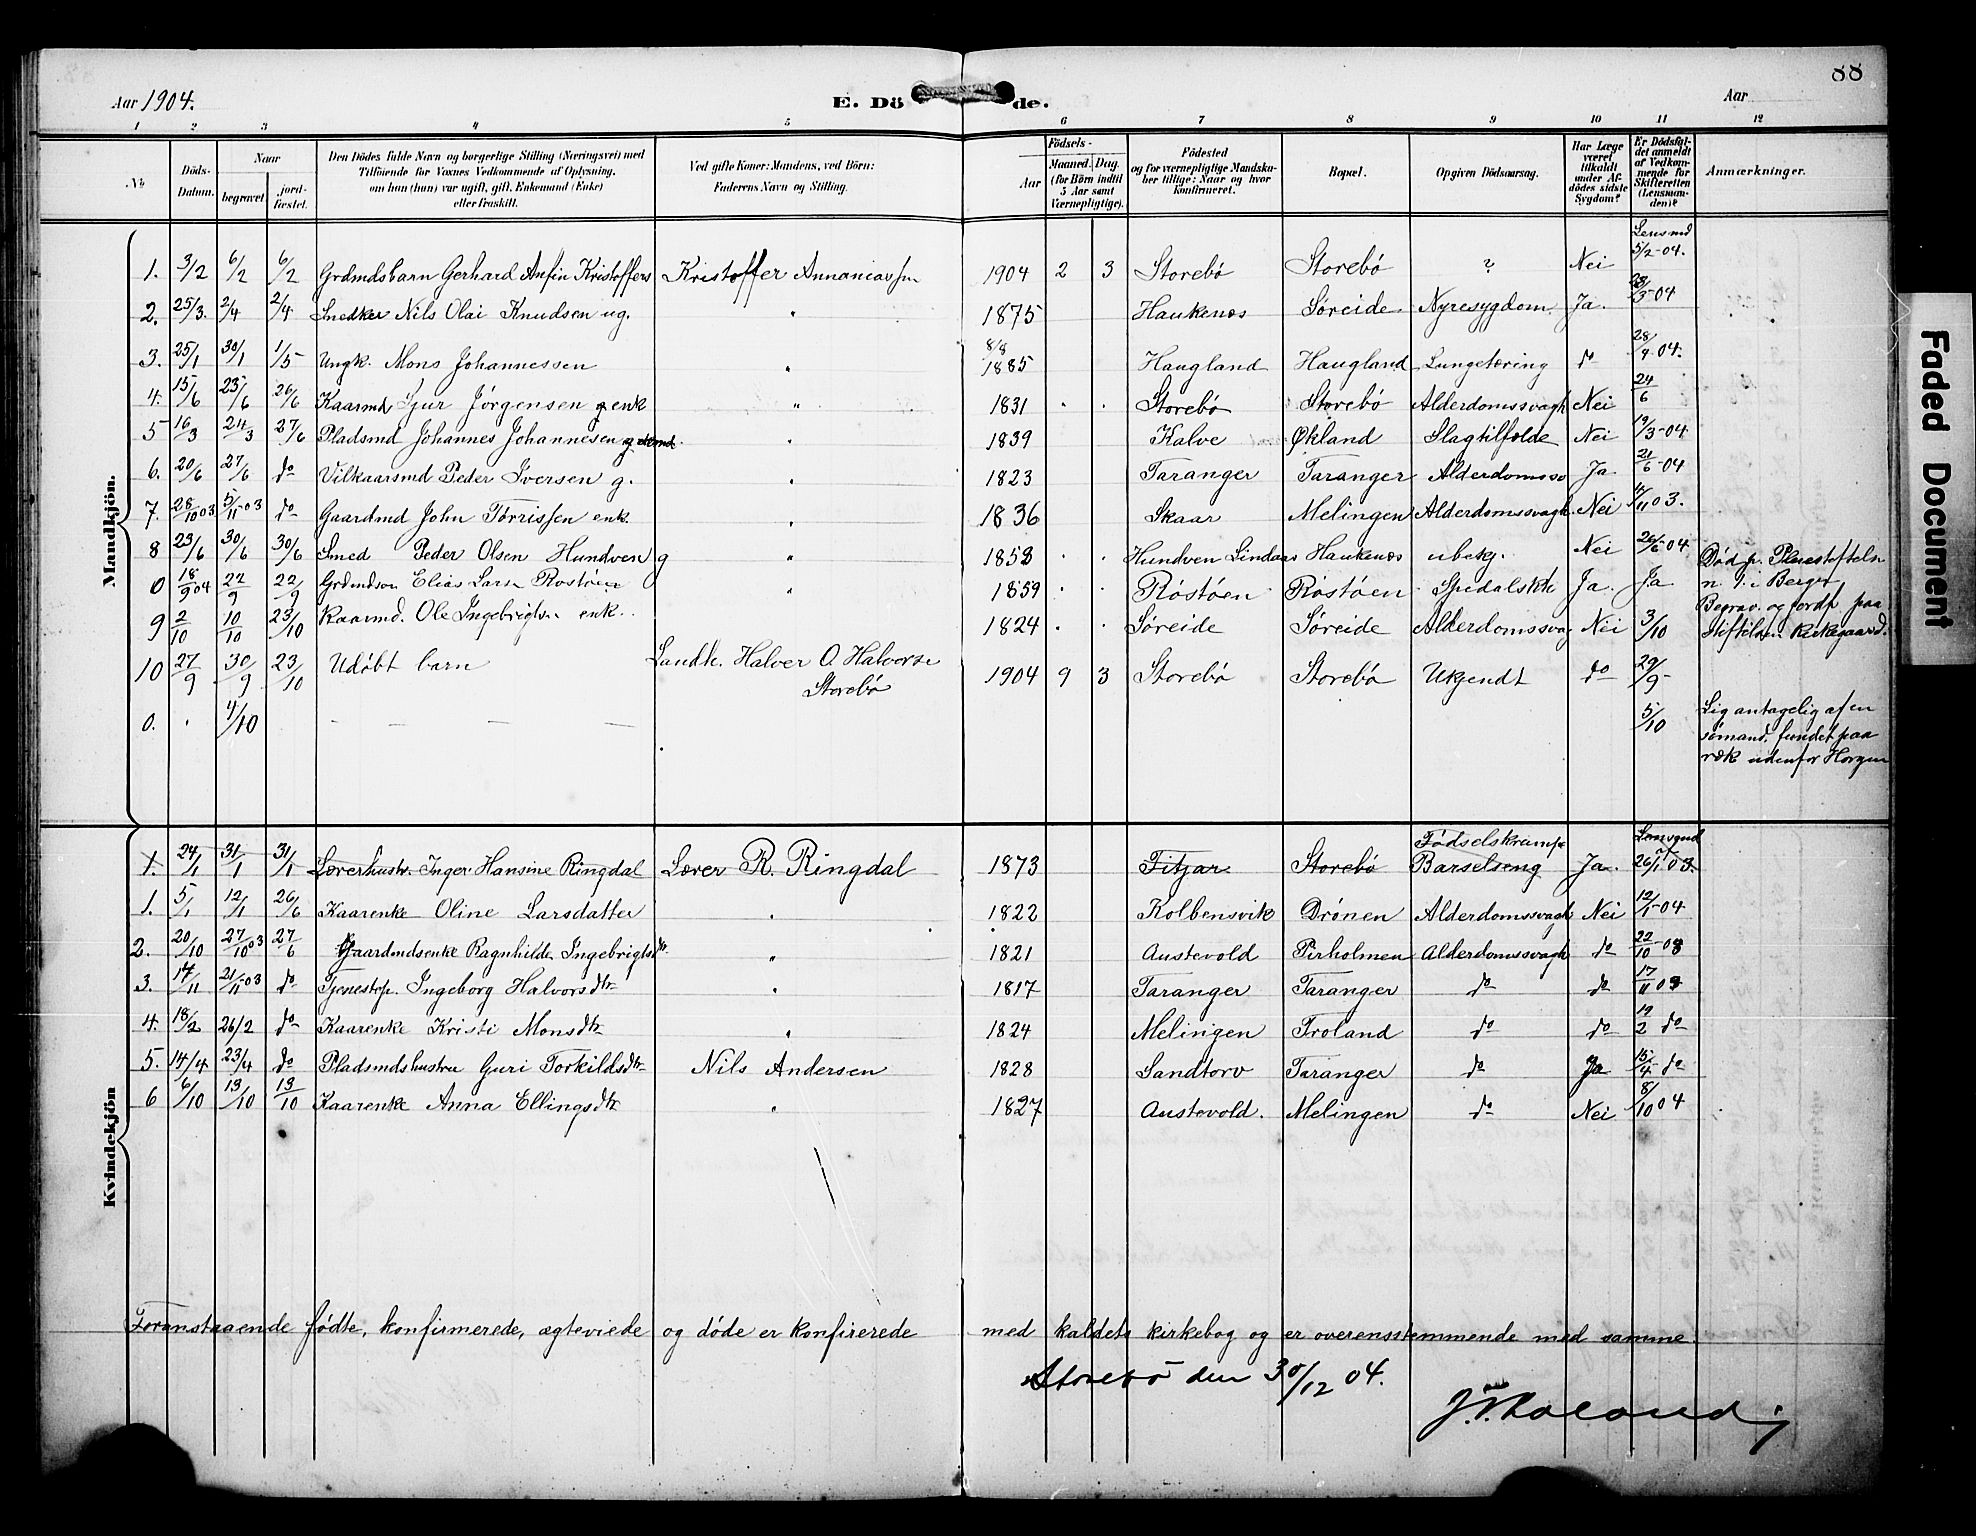 88
Aar 1904.
E. Dö de.
Aar
1 2 3 4 5 6 7 8 9 10 11 12
No
Döds-Datum.
Naar
begravet
jordfæstet.
Den Dödes fulde Navn og borgerlige Stilling (Næringsvei) med Tilföiende for Voxnes Vedkommende af Oplysning, om han (hun) var ugift, gift, Enkemand (Enke) eller fraskilt.
Ved gifte Koner: Mandens, ved Börn: Faderens Navn og Stilling.
Födsels-
Aar
Maaned. Dag.
(for Börn indtil 5 Aar samt Værnepligtige).
Födested og for værnepligtige Mandskaber tillige: Naar og hvor Konfirmeret.
Bopæl.
Opgiven Dödsaarsag.
Har Læge været tilkaldt under Afdödes sidste Sygdom?
Er Dödsfaldet anmeldt af Vedkommende for Skifteretten (Lensmanden)?
Anmærkninger.
Mandkjön.
1. 3/2 6/2 6/2 Grdmdsbarn Gerhard Anfin Kristoffers Kristoffer Annaniassen 1904 2 3 Storebø Storebø ? Nei Lensmd 5/2-04.
2. 25/3. 2/4 2/4 Snedker Nils Olai Knudsen ug. " 1875 Haukenæs Søreide Nyresygdom. Ja. 28/3-04
3. 25/1 30/1 1/5 Ungk. Mons Johannessen " 8/8 1885 Haugland Haugland Lungetæring do 28/4 04.
4. 15/6 23/6 26/6 Kaarmd Sjur Jørgensen enk " 1831 Storebø Storebø Alderdomssvagh Nei 24/6
5 16/3 24/3 27/6 Pladsmd Johannes Johannesen " 1839 Kalve Økland Slagtilfælde Nei 19/3-04
6. 20/6 27/6 do Vilkaarsmd Peder Iversen g. " 1823 Taranger Taranger Alderdomssv Ja 21/6-04
7. 28/10 03 5/11-03 do Gaardmd John Tørrissen enk. " 1836 Skaar Melingen Alderdomssvagh. Nei 4/11 03.
8 23/6 30/6 30/6 Smed Peder Olsen Hundven g " 1858 Hundven Lindaas Haukenæs ubekj. Nei 26/6-04
0 18/9 04 22/9 22/9 Grdmdsøn Elias Larsn Rostøen " 1859 Røstøen Røstøen Spedalskh Ja. Ja Død p. Pleiestifteln n. 1. i Bergen
Begrav. og jordf. paa Stiftelsn Kirkegaard.
9 2/10 10/10 23/10 Kaarmd. Ole Ingebrigtsn enk. 1824 Søreide Søreide Alderdomssvag Nei 3/10
10 27/9 30/9 23/10 Udøbt barn Landh. Halver O. Halvorsn Storebø 1904 9 3 Storebø Storebø Ukjendt do 29/9
0. 4/10 — — — 5/10 Lig antagelig af en
sømand, fundet paa
ræk udenfor Horgen
Kvindekjön
1. 24/1 31/1 31/1 Lærerhustr. Inger Hansine Ringdal Lærer R. Ringdal 1873 Fitjar Storebø Fødselskrampe Barselseng Ja. Lensmd 26/1 03.
1. 5/1 12/1 26/6 Kaarenke Oline Larsdatter " 1822 Kolbensvik Drønen Alderdomssvagh Nei 12/1-04
2. 20/10 27/10 03 27/6 Gaardmdsenke Ragnhilde Ingebrigtsdtr. " 1821 Austevold Pirholmen Alderdomssvagh do 22/10-03
3. 17/11 21/11-03 do Tjenestep. Ingeborg Halvorsdtr " 1817 Taranger Taranger do do 17/11 03
4. 18/2 26/2 do Kaarenke Kristi Monsdtr " 1824 Melingen Troland do do 19/2 do
5. 14/4 23/4 do Pladsmdshustru Guri Torkildsdtr Nils Andersen 1828 Sandtorv Taranger do Ja 15/4 do
6 6/10 13/10 13/10 Kaarenke Anna Ellingsdtr " 1827 Austevold. Melingen do Nei 8/10 04
Foranstaaende fødte, konfirmerede, ægteviede og døde er konfirerede med kaldets kirkebog og er overensstemmende med samme.
Storebø den 30/12 04.
Faded Document